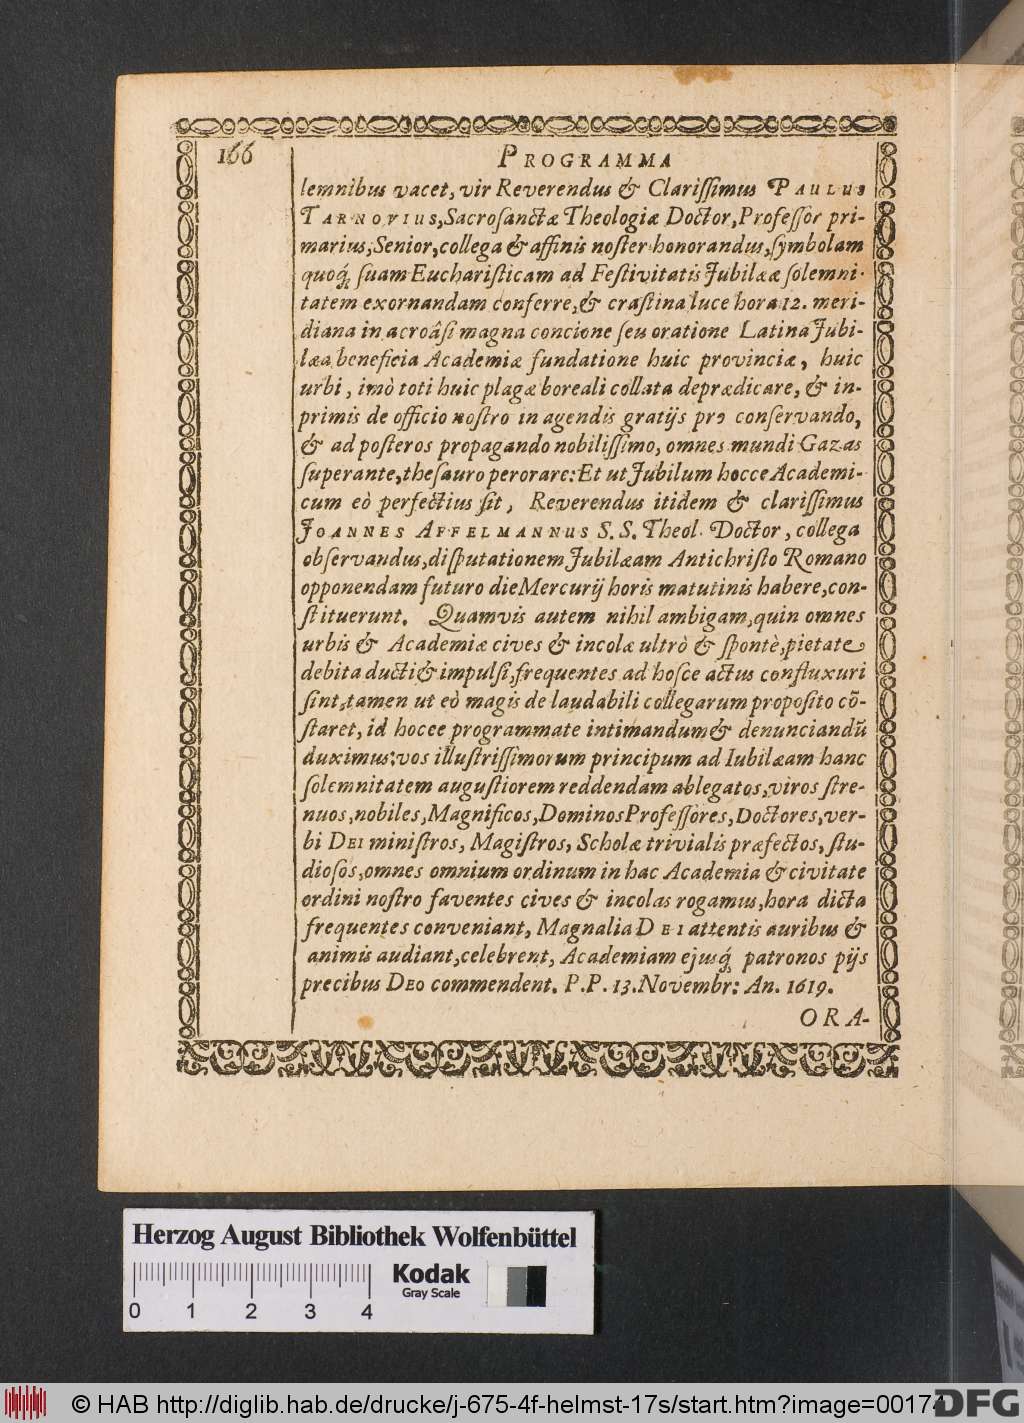 166
PROGRAMMA
lemnibus vacet, vir Reverendus & Clariſſimus PAULUS
TARNOVIUS, Sacroſanctæ Theologiæ Doctor, Profeſſor pri-
marius, Senior, collega & affinis noſter honorandus, ſymbolam
quoq́; ſuam Euchariſticam ad Feſtivitatis Jubilææ ſolemni-
tatem exornandam conferre, & craſtina luce hora 12. meri-
diana in acroâſi magna concione ſeu oratione Latina Jubi-
læa beneficia Academiæ fundatione huic provinciæ, huic
urbi, imò toti huic plagæ boreali collata deprædicare, & in-
primis de officio noſtro in agendis gratijs pro conſervando,
& ad poſteros propagando nobiliſſimo, omnes mundi Gazas
ſuperante, theſauro perorare: Et ut Jubilum hocce Academi-
cum eò perfectius ſit, Reverendus itidem & clariſſimus
JOANNES AFFELMANNUS S. S. Theol. Doctor, collega
obſervandus, diſputationem Jubilæam Antichriſto Romano
opponendam futuro die Mercurij horis matutinis habere, con-
ſtituerunt. Quamvis autem nihil ambigam, quin omnes
urbis & Academiæ cives & incolæ ultrò & ſpontè, pietate
debita ducti & impulſi, frequentes ad hoſce actus confluxuri
ſint, tamen ut eò magis de laudabili collegarum propoſito cõ-
ſtaret, id hocce programmate intimandum & denunciandũ
duximus: vos illuſtriſſimorum principum ad Iubilæam hanc
ſolemnitatem auguſtiorem reddendam ablegatos, viros ſtre-
nuos, nobiles, Magnificos, Dominos Profeſſores, Doctores, ver-
bi DEI miniſtros, Magiſtros, Scholæ trivialis præfectos, ſtu-
dioſos, omnes omnium ordinum in hac Academia & civitate
ordini noſtro faventes cives & incolas rogamus, hora dicta
frequentes conveniant, Magnalia DEI attentis auribus &
animis audiant, celebrent, Academiam ejusq́; patronos pijs
precibus DEO commendent. P. P. 13. Novembr: An. 1619.
ORA-
Herzog August Bibliothek Wolfenbüttel
Kodak
Gray Scale
0 1 2 3 4
© HAB http://diglib.hab.de/drucke/j-675-4f-helmst-17s/start.htm?image=00174
DFG